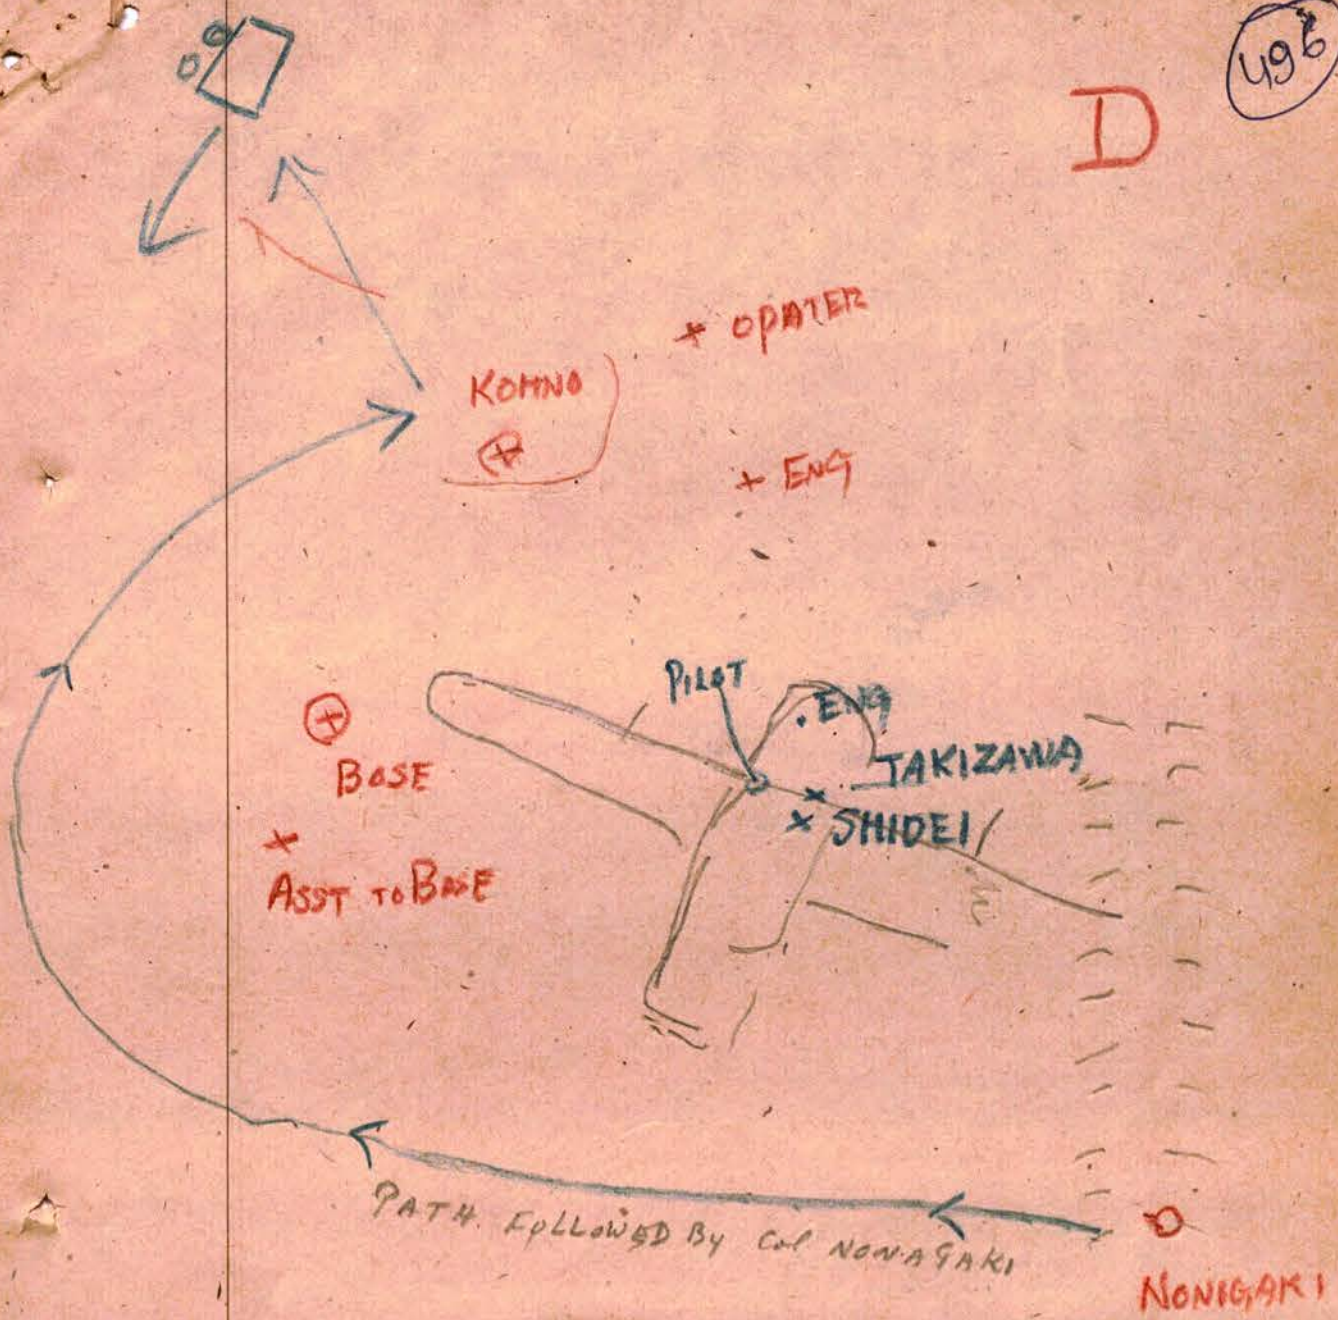 496
D
+ OPATER
KOHNO
+ ENG
PILOT
ENG
TAKIZAWA
BOSE
SHIDEI
ASST TO BOSE
PATH FOLLOWED By Col NONAGAKI
NONIGAKI